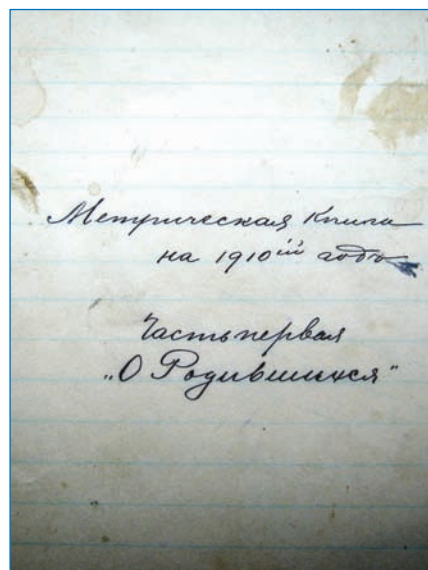 Метрическая Книга
на 1910ій годъ
Часть первая
„О Родившихся"